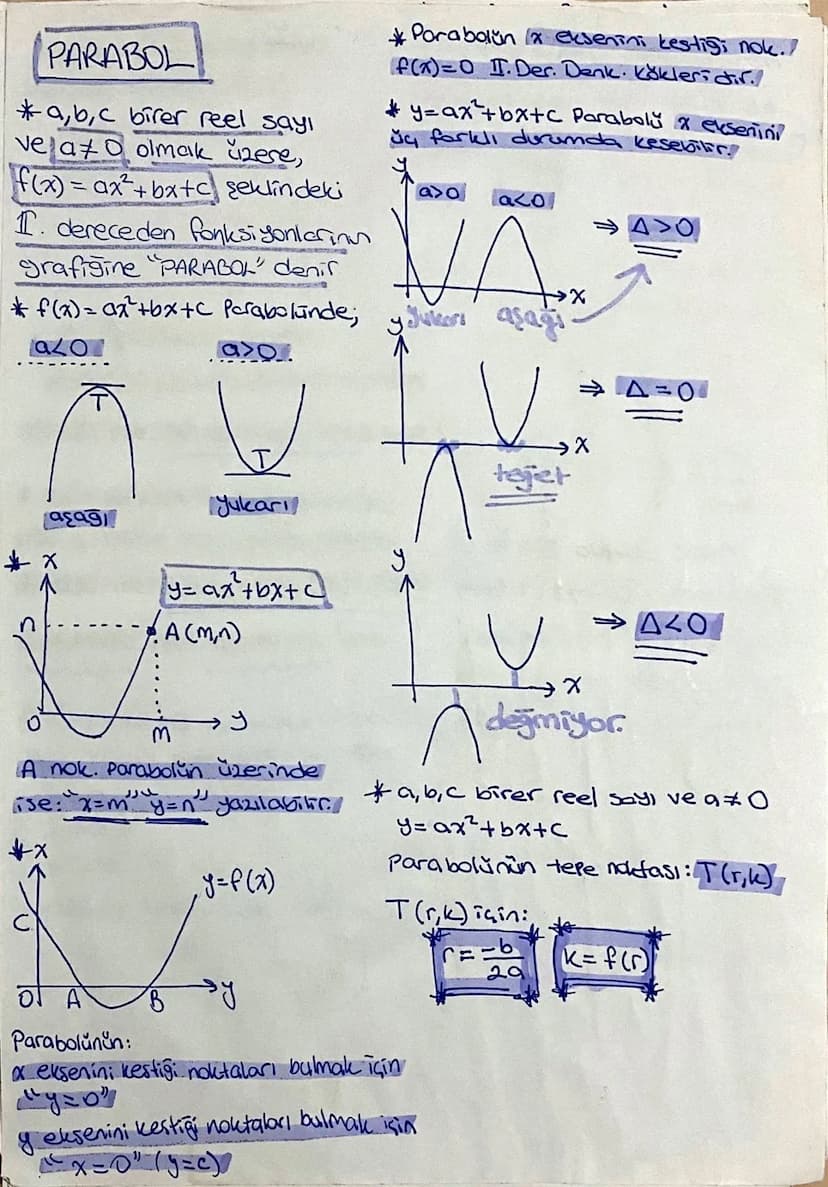 PARABOL
* a,b,c birer reel sayı
ve a≠0 olmak üzere,
f(x) = ax²+bx+c şeklindeki
II. dereceden fonksiyonlarının
grafiğine "PARABOL" denir
* f(x)= ax²+bx+c Parabolünde;
a<0 a>0
T T
aşağı yukarı
* x
y= ax²+bx+c
n A(m,n)
O m y
A nok. parabolün üzerinde
ise: "x=m" "y=n" yazılabilir.
* x
y=f(x)
C
O A B y
Parabolünün:
x eksenini kestiği noktaları bulmak için
"y=0"
y eksenini kestiği noktaları bulmak için
"x=0" (y=c)
* Parabolün x eksenini kestiği nok.
f(x)=0 II. Der. Denk. kökleridir.
* y=ax²+bx+c Parabolü x eksenini
üç farklı durumda kesebilir.
y
a>0 a<0
⇒ Δ>0
x
yukarı aşağı
y
⇒ Δ=0
x
teğet
y
⇒ Δ<0
x
değmiyor.
* a,b,c birer reel sayı ve a≠0
y=ax²+bx+c
Parabolünün tepe noktası: T(r,k)
T(r,k) için:
r = -b/2a k = f(r)